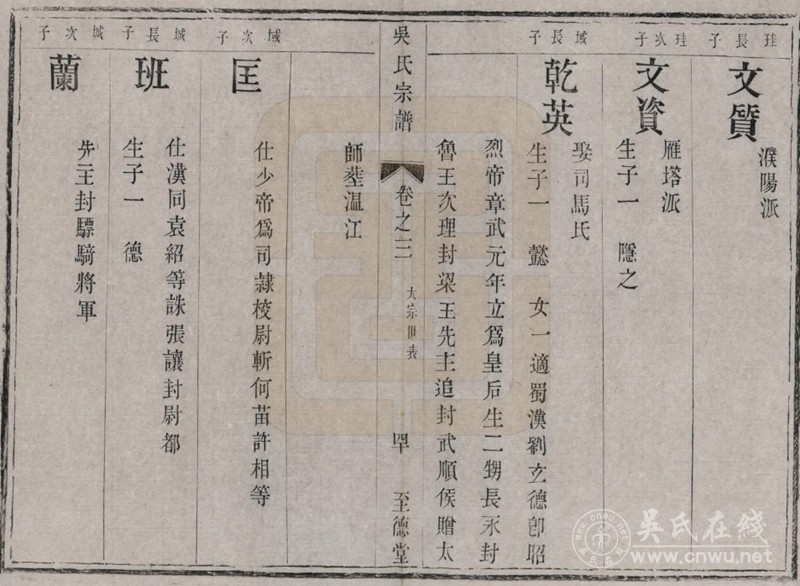 珪長子
文質
濮陽派
珪次子
文資
雁塔派
生子一 隱之
域長子
乾英
娶司馬氏
生子一 懿 女一適蜀漢劉玄德卽昭
烈帝章武元年立爲皇后生二甥長永封
魯王次理封梁王先主追封武順侯贈太
師塟温江
吳氏宗譜
卷之三
大宗世表
至德堂
域次子
匡
仕少帝爲司隷校尉斬何苗許相等
城長子
班
仕漢同袁紹等誅張讓封尉都
生子一 德
城次子
蘭
先主封驃騎將軍
吴氏在线
www.cnwu.net